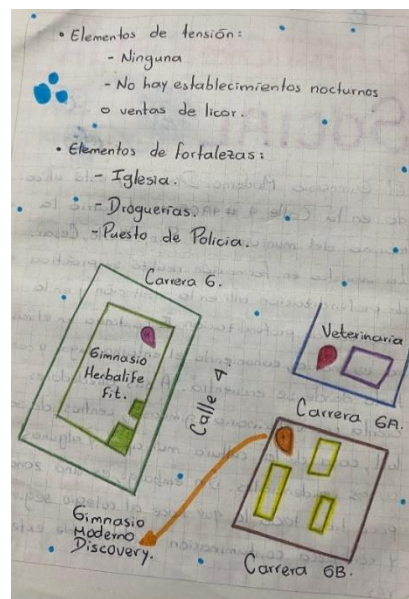 • Elementos de tensión:
- Ninguna
- No hay establecimientos nocturnos
o ventas de licor.
• Elementos de fortalezas:
- Iglesia.
- Droguerías.
- Puesto de Policia.
Carrera 6.
Gimnasio
Herbalife
Fit.
Calle 4
Veterinaria
Carrera 6A.
Gimnasio
Moderno
Discovery.
Carrera 6B.